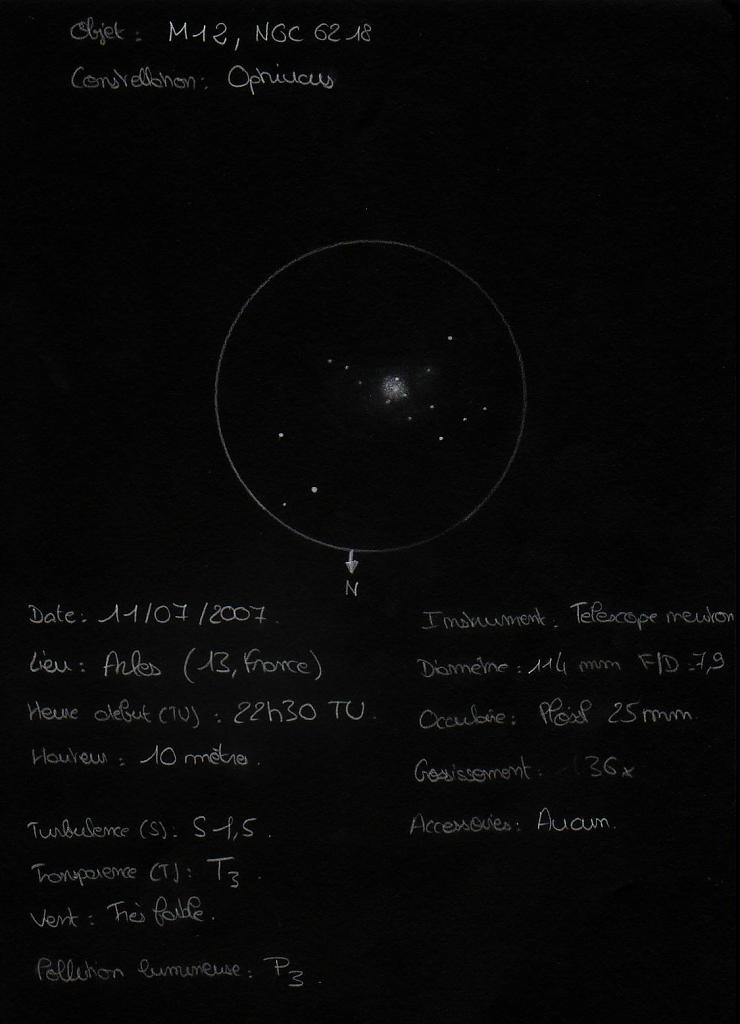 Objet : M12, NGC 6218
Constellation : Ophiucus
N
Date : 11/07/2007.
Lieu : Arles (13, France)
Heure début (TU) : 22h30 TU.
Hauteur : 10 mètre.
Turbulence (S) : S 1,5.
Transparence (T) : T3.
Vent : Très faible.
Pollution lumineuse : P3.
Instrument : Telescope newton
Diamètre : 114 mm F/D : 7,9
Occulaire : Plössl 25 mm
Gossissement : 36x
Accessoires : Aucun.